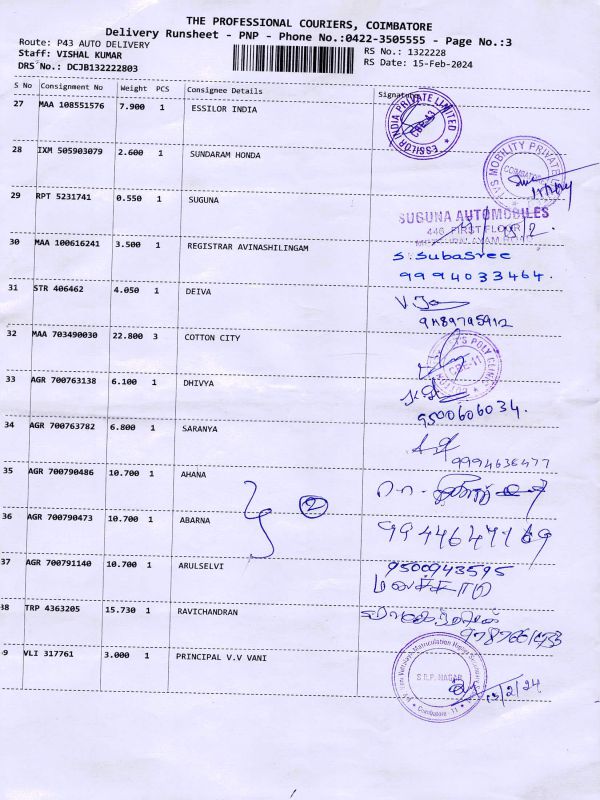 THE PROFESSIONAL COURIERS, COIMBATORE
Delivery Runsheet - PNP - Phone No.:0422-3505555 - Page No.:3
Route: P43 AUTO DELIVERY
Staff: VISHAL KUMAR
DRS No.: DCJB132222803
RS No.: 1322228
RS Date: 15-Feb-2024
S No Consignment No Weight PCS Consignee Details Signature
27 MAA 108551576 7.900 1 ESSILOR INDIA
ESSILOR INDIA PRIVATE LIMITED
CBE-43
28 IXM 505903079 2.600 1 SUNDARAM HONDA
TVS MOBILITY PRIVATE
29 RPT 5231741 0.550 1 SUGUNA
SUGUNA AUTOMOBILES
446, FIRST FLOOR
15/2.
30 MAA 100616241 3.500 1 REGISTRAR AVINASHILINGAM
S. Subasree
9994033464.
31 STR 406462 4.050 1 DEIVA
32 MAA 703490030 22.800 3 COTTON CITY
CBE-11
33 AGR 700763138 6.100 1 DHIVYA
9500606034.
34 AGR 700763782 6.800 1 SARANYA
9994636477
35 AGR 700790486 10.700 1 AHANA
2
36 AGR 700790473 10.700 1 ABARNA
9944647169
37 AGR 700791140 10.700 1 ARULSELVI
9500943595
38 TRP 4363205 15.730 1 RAVICHANDRAN
39 VLI 317761 3.000 1 PRINCIPAL V.V VANI
S.R.P. NAGAR
Coimbatore - 11
15/2/24